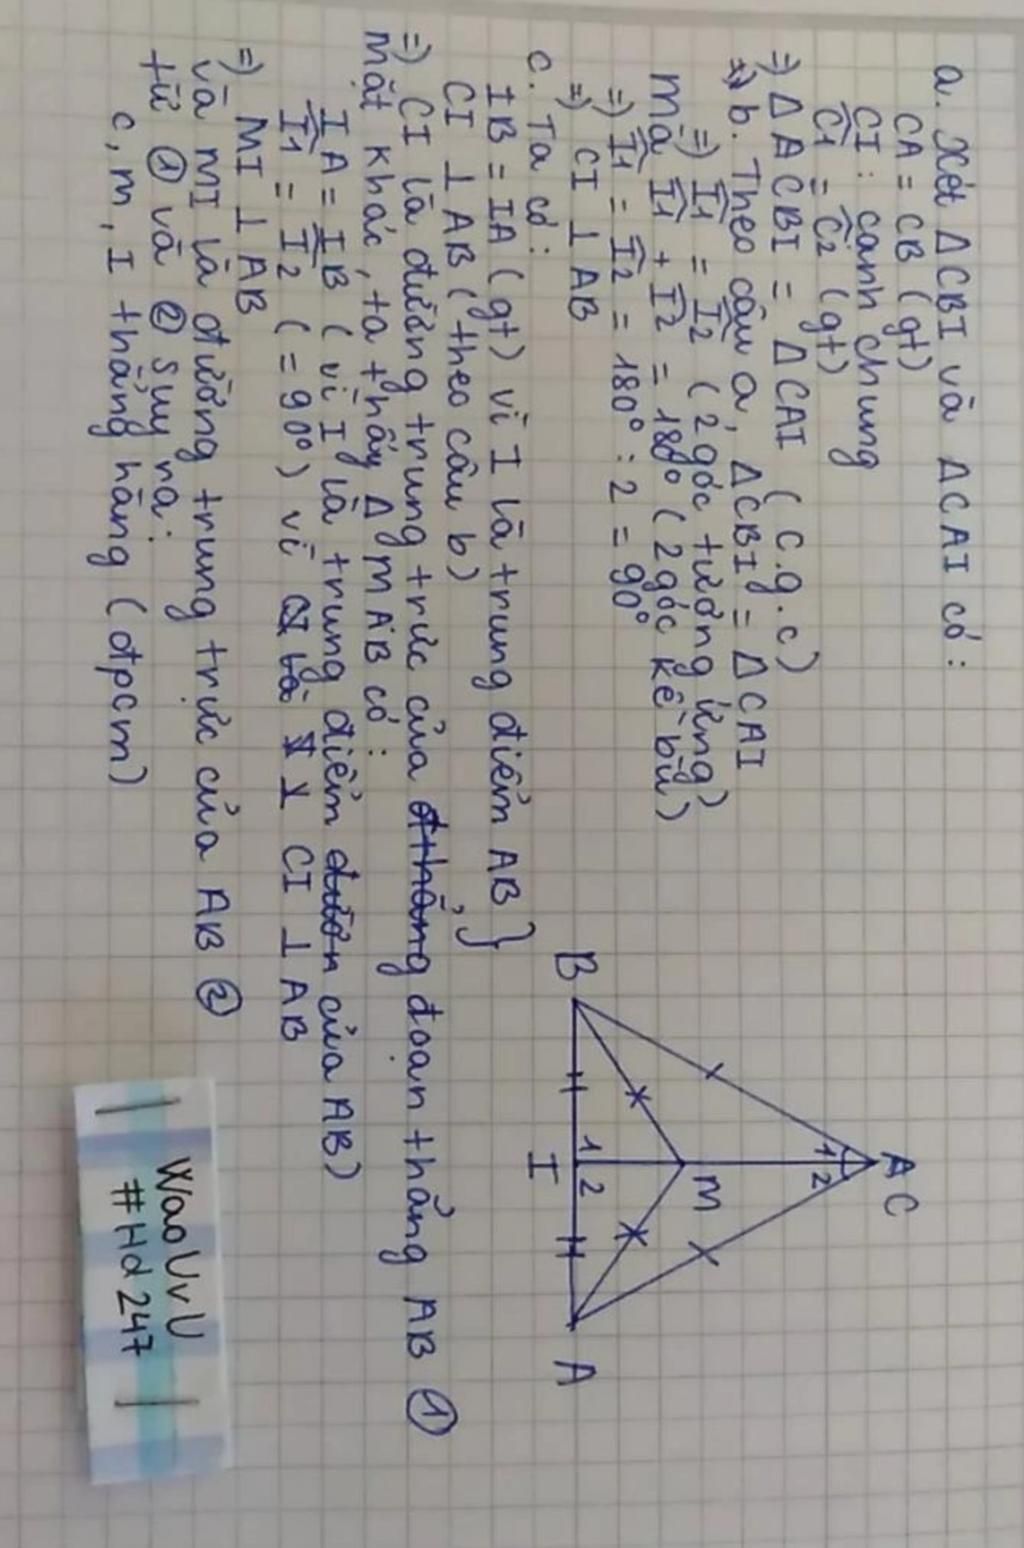 a. Xét Δ CBI và Δ CAI có:
CA = CB (gt)
CI: cạnh chung
Ĉ1 = Ĉ2 (gt)
=) Δ ACBI = Δ CAI (c.g.c)
=) b. Theo câu a, Δ CBI = Δ CAI
=) Î1 = Î2 (2 góc tương ứng)
mà Î1 + Î2 = 180° (2 góc kề bù)
=) Î1 = Î2 = 180° : 2 = 90°
=) CI ⊥ AB
c. Ta có:
IB = IA (gt) vì I là trung điểm AB }
CI ⊥ AB (theo câu b)
=) CI là đường trung trực của đoạn thẳng AB ①
mặt khác, ta thấy Δ MAB có:
IA = IB (vì I là trung điểm của AB)
Î1 = Î2 (= 90°) vì ⊥ CI ⊥ AB
=) MI ⊥ AB
và MI là đường trung trực của AB ②
từ ① và ② suy ra:
C, M, I thẳng hàng (đpcm)
A C
1 2
M
B
1 2
I
A
WaoUvU
#Hd247